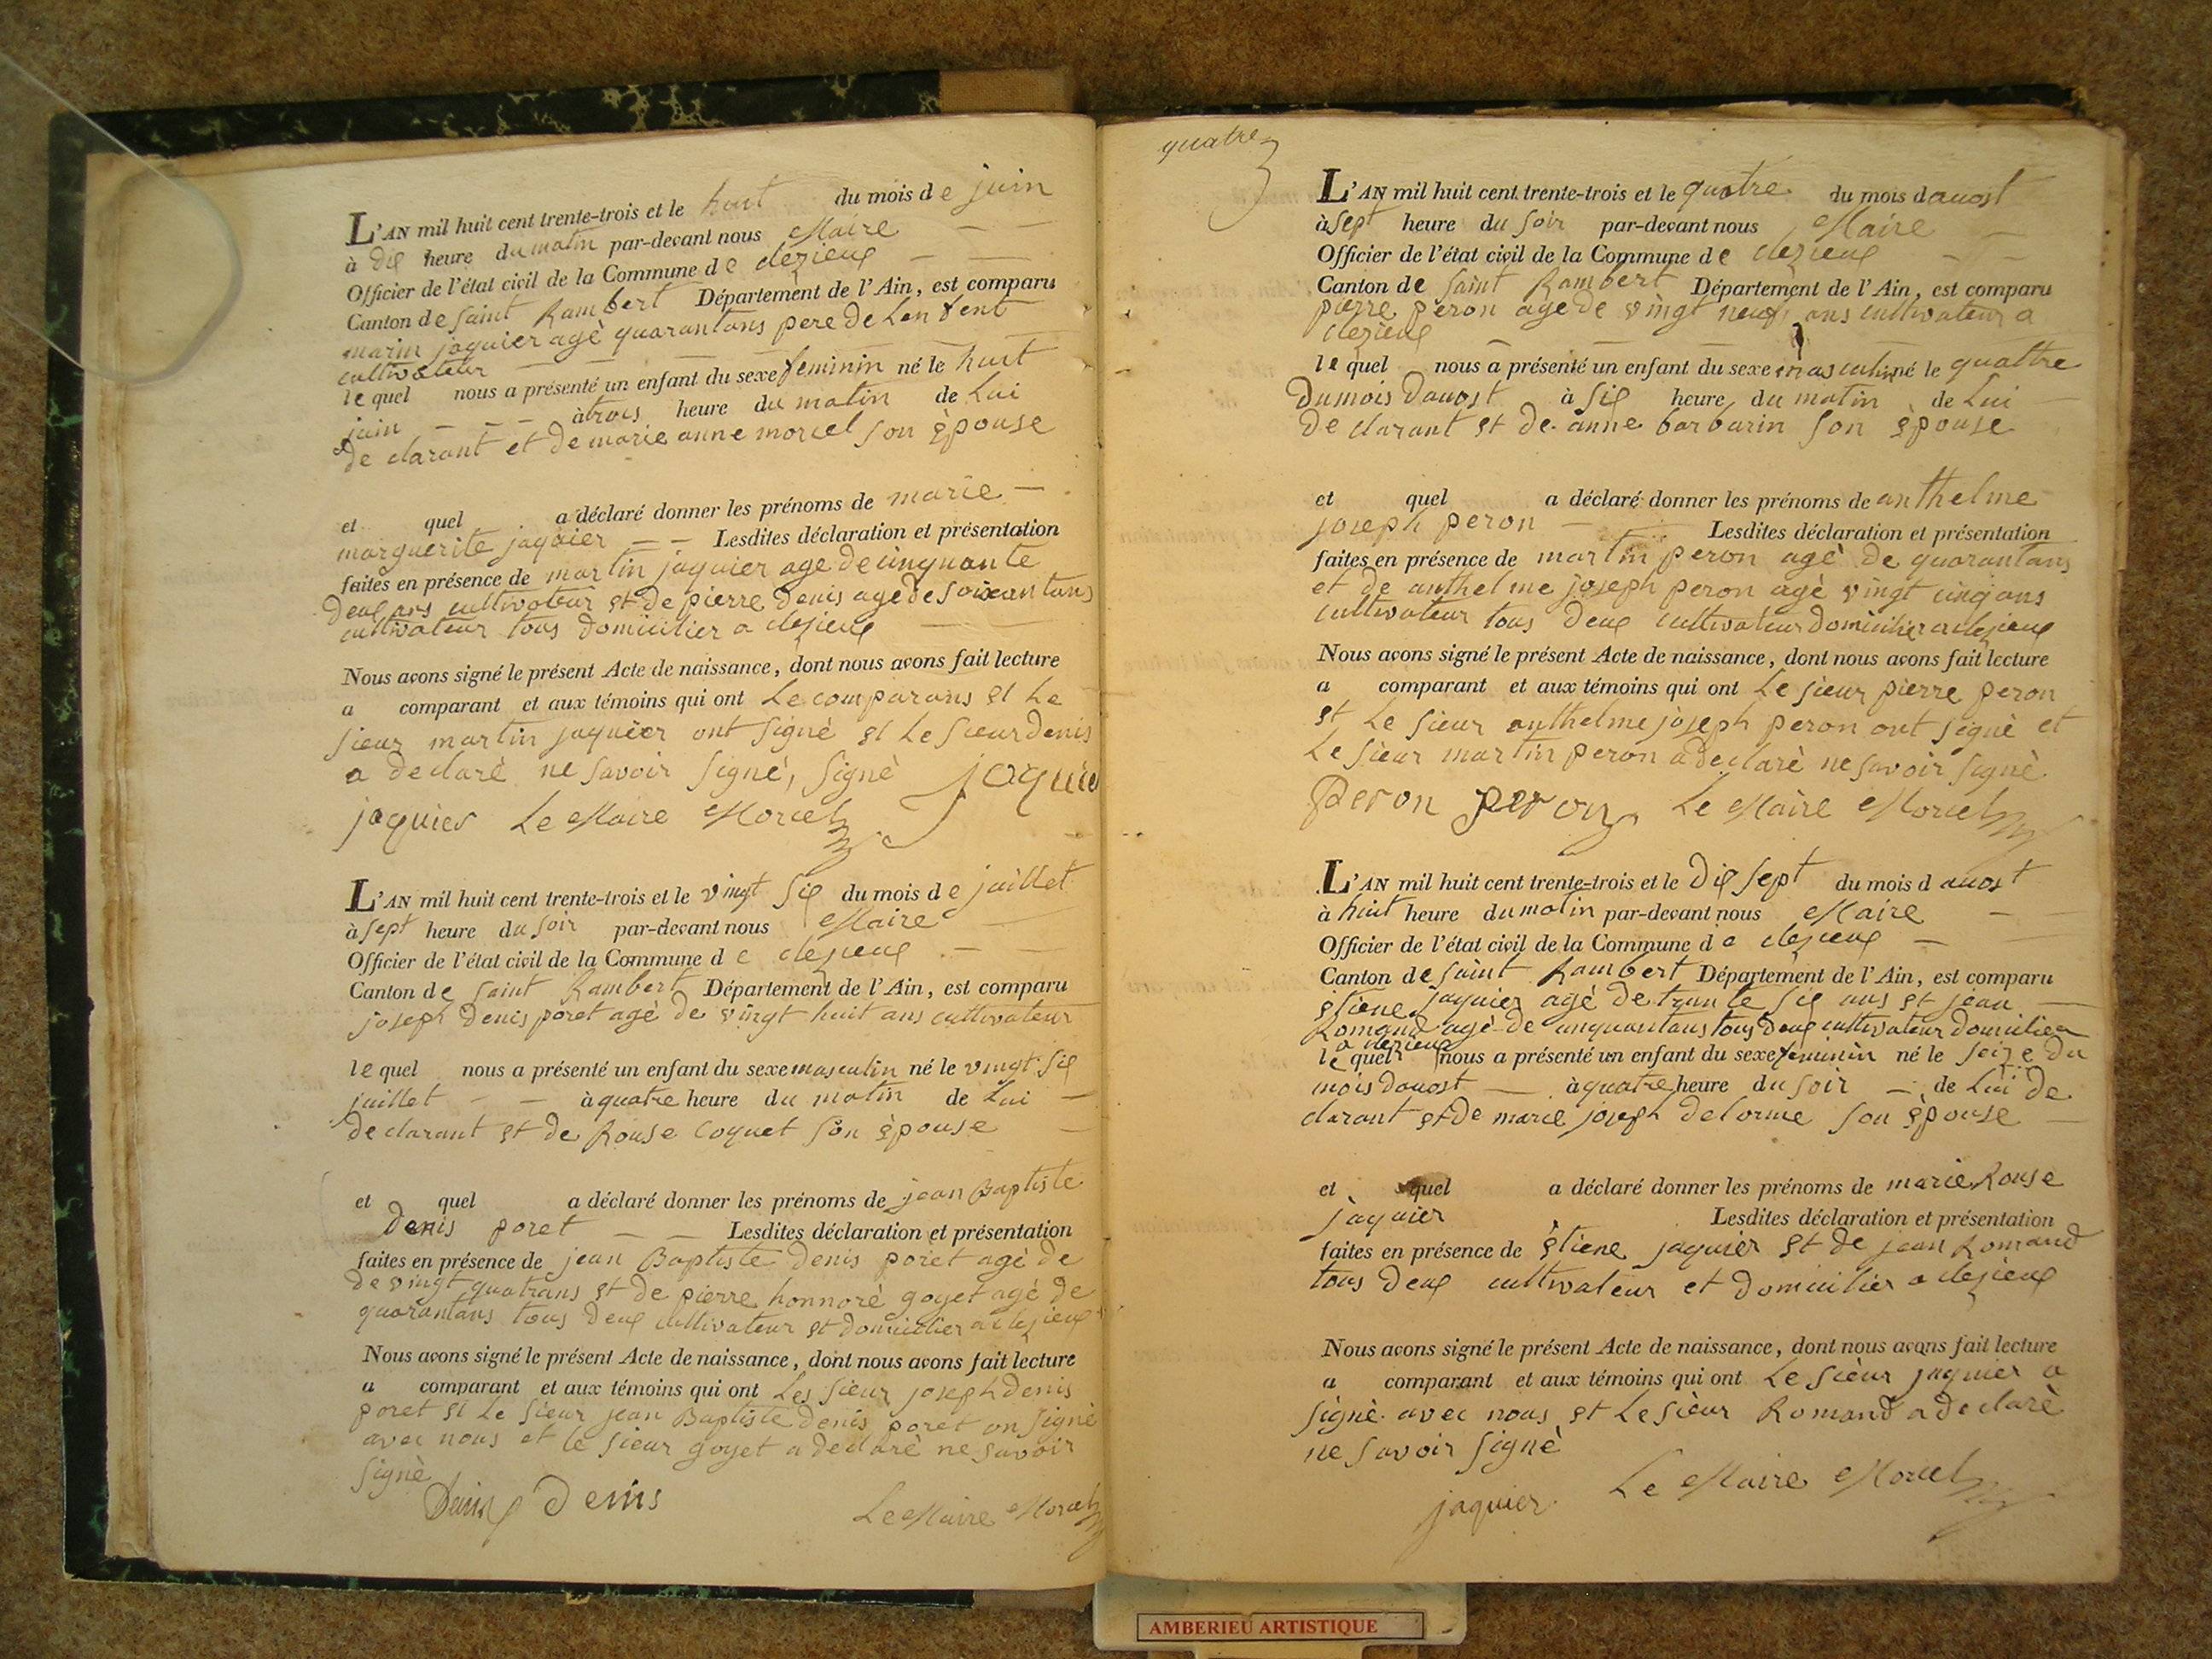 L'AN mil huit cent trente-trois et le huit du mois de juin
à dix heure du matin par-devant nous Maire
Officier de l'état civil de la Commune de clezieux
Canton de saint Rambert Département de l'Ain, est comparu
marin jaquier agè quarantans pere de Lenfent
cultivateur
le quel nous a présenté un enfant du sexe feminin né le huit
juin à trois heure du matin de Lui
de clarant et de marie anne morcel son èpouse
et quel a déclaré donner les prénoms de marie
marguerite jaquier Lesdites déclaration et présentation
faites en présence de martin jaquier age de cinquante
deux ans cultivateur et de pierre denis age de soixantans
cultivateur tous domicilier a clezieux
Nous avons signé le présent Acte de naissance, dont nous avons fait lecture
a comparant et aux témoins qui ont Le comparans et Le
sieur martin jaquier ont signè et Le sieur denis
a declarè ne savoir signè, signè jaquie
jaquier Le Maire Morcel
L'AN mil huit cent trente-trois et le vingt six du mois de juillet
à sept heure du soir par-devant nous Maire
Officier de l'état civil de la Commune de clezieux
Canton de saint Rambert Département de l'Ain, est comparu
joseph denis poret agè de vingt huit ans cultivateur
le quel nous a présenté un enfant du sexe masculin né le vingt six
juillet à quatre heure du matin de Lui
de clarant et de Rouse Coquet son èpouse
et quel a déclaré donner les prénoms de jean Baptiste
denis poret Lesdites déclaration et présentation
faites en présence de jean Baptiste denis poret agè de
de vingt quatrans et de pierre honnorè goyet agè de
quarantans tous deux cultivateur et domicilier a clezieux
Nous avons signé le présent Acte de naissance, dont nous avons fait lecture
a comparant et aux témoins qui ont Les sieur joseph denis
poret et Le sieur jean Baptiste denis poret on signè
avec nous et le sieur goyet a declarè ne savoir
signè
Denis denis Le Maire Morcel
quatre
L'AN mil huit cent trente-trois et le quatre du mois dauost
à sept heure du soir par-devant nous Maire
Officier de l'état civil de la Commune de clezieux
Canton de saint Rambert Département de l'Ain, est comparu
pierre peron age de vingt neuf ans cultivateur a
clezieux
le quel nous a présenté un enfant du sexe masculin né le quattre
du mois dauost à six heure du matin de Lui
de clarant et de anne barbarin son èpouse
et quel a déclaré donner les prénoms de anthelme
joseph peron Lesdites déclaration et présentation
faites en présence de martin peron agè de quarantans
et de anthelme joseph peron agè vingt cinq ans
cultivateur tous deux cultivateur domicilier a clezieux
Nous avons signé le présent Acte de naissance, dont nous avons fait lecture
a comparant et aux témoins qui ont Le sieur pierre peron
et Le sieur anthelme joseph peron ont signè et
Le sieur martin peron a declarè ne savoir signè
Peron peron Le Maire Morcel
L'AN mil huit cent trente-trois et le dix sept du mois dauost
à huit heure du matin par-devant nous Maire
Officier de l'état civil de la Commune de clezieux
Canton de saint Rambert Département de l'Ain, est comparu
etiene jaquier agè de trente six ans et jean
Romand agè de cinquantans tous deux cultivateur domicilier
a clezieux
le quel nous a présenté un enfant du sexe feminin né le seize du
mois dauost à quatre heure du soir de Lui de
clarant et de marie joseph delorme son èpouse
et quel a déclaré donner les prénoms de marie Rouse
jaquier Lesdites déclaration et présentation
faites en présence de etiene jaquier et de jean Romand
tous deux cultivateur et domicilier a clezieux
Nous avons signé le présent Acte de naissance, dont nous avons fait lecture
a comparant et aux témoins qui ont Le sieur jaquier a
signè avec nous et Le sieur Romand a declarè
ne savoir signè
jaquier Le Maire Morcel
AMBERIEU ARTISTIQUE